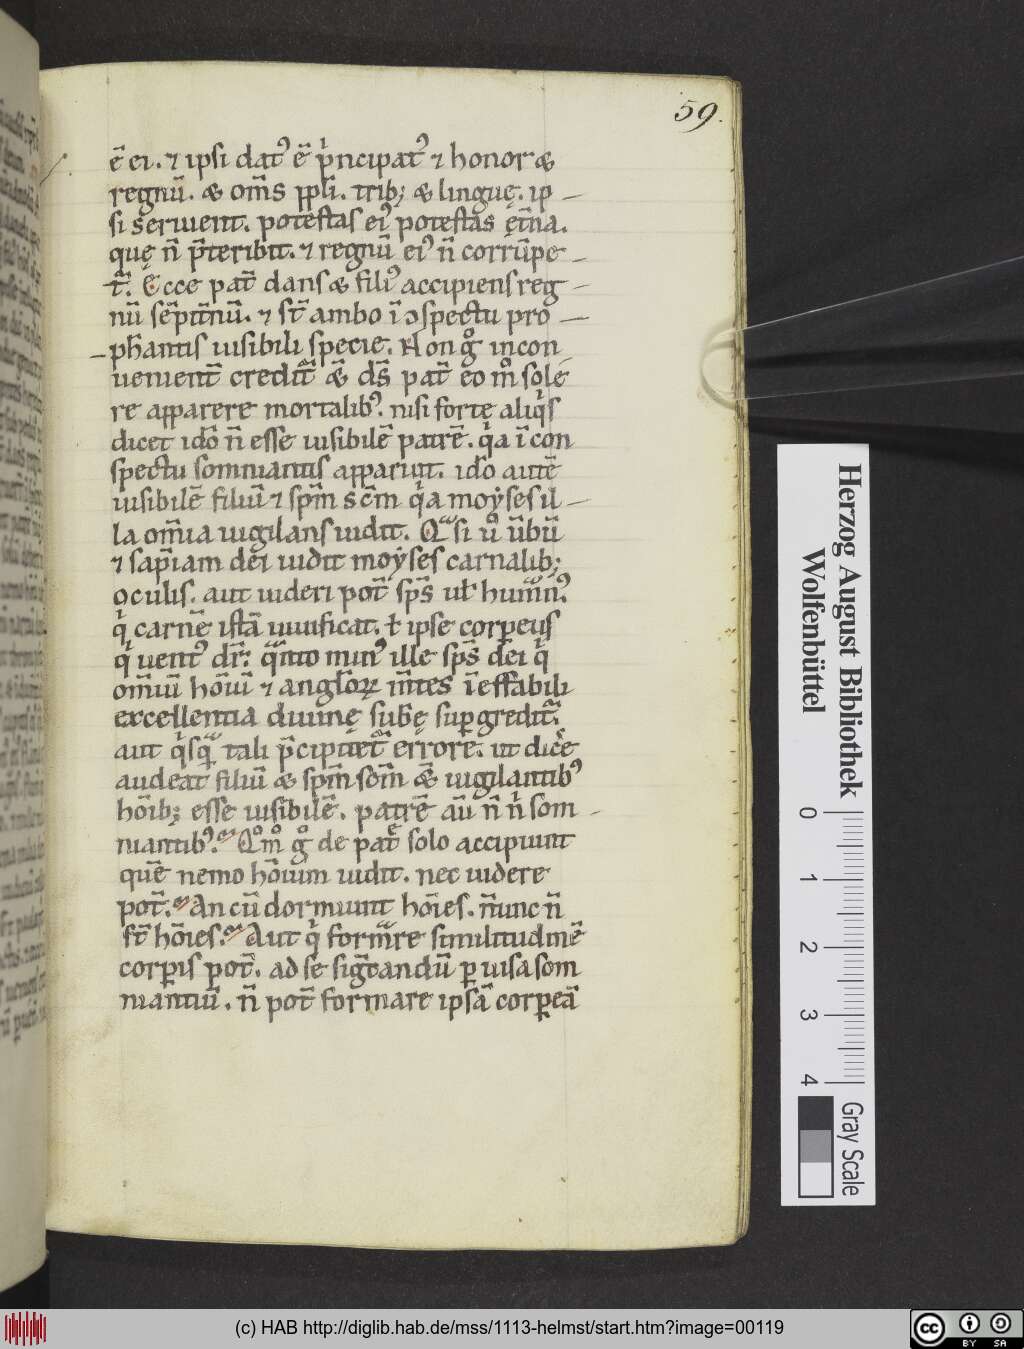 59.
ē ei. ⁊ ipsi datꝰ ē pͥncipatꝰ ⁊ honor æ
regnū. æ om̄s ppl̄i. trib; æ linguę. ip
si seruient. potestas eiꝰ potestas ęt̄na.
quę n̄ p̄teribit. ⁊ regnū eiꝰ n̄ corrūpe
t̄. Ecce pat̄ dans æ filiꝰ accipiens reg
nū sēpit̄nū. ⁊ st̄ ambo ī ↄspectu pro
ph̄antis uisibili specie. Non gͦ incon
uenient̄ credit̄ ǣ ds̄ pat̄ eo mͦ sole
re apparere mortalibꝰ. nisi forte aliqͥs
dicet idō n̄ esse uisibilē patrē. qͥa ī con
spectu somniantis apparuit. idō autē
uisibilē filiū ⁊ sp̄m sc̄m qͥa moẏses il
la om̄ia uigilans uidit. Qᵃsi uͦ ūbū
⁊ sap̄iam dei uidit moẏses carnalib;
oculis. aut uideri pot̄ sp̄s uł humᵃnꝰ
qͥ carnē istā uiuificat. ł ipse corꝑeus
qͥ uentꝰ dr̄. qᵃnto minꝰ ille sp̄s dei qͥ
om̄iū hōiū ⁊ anglōꝝ m̄tes īeffabili
excellentia diuinę subę suꝑgredit̄.
aut qͥsqᵃ tali p̄cipitet̄ errore. ut dicere
audeat filiū æ sp̄m som̄ ǣ uigilantibꝰ
hōib; esse uisibilē. patrē aū n̄ nͥ som
niantibꝰ. Qͦmͦ gͦ de patre solo accipiunt
quē nemo hōium uidit. nec uidere
pot̄. An cū dormiunt hōies. n̄unc n̄
st̄ hōies. Aut qͥ formᵃre similitudinē
corꝑis pot̄. ad se sigt̄andū ꝑ uisa som
niantiū. n̄ pot̄ formare ipsā corꝑeā
Herzog August Bibliothek
Wolfenbüttel
0 1 2 3 4
Gray Scale
(c) HAB http://diglib.hab.de/mss/1113-helmst/start.htm?image=00119
cc BY SA